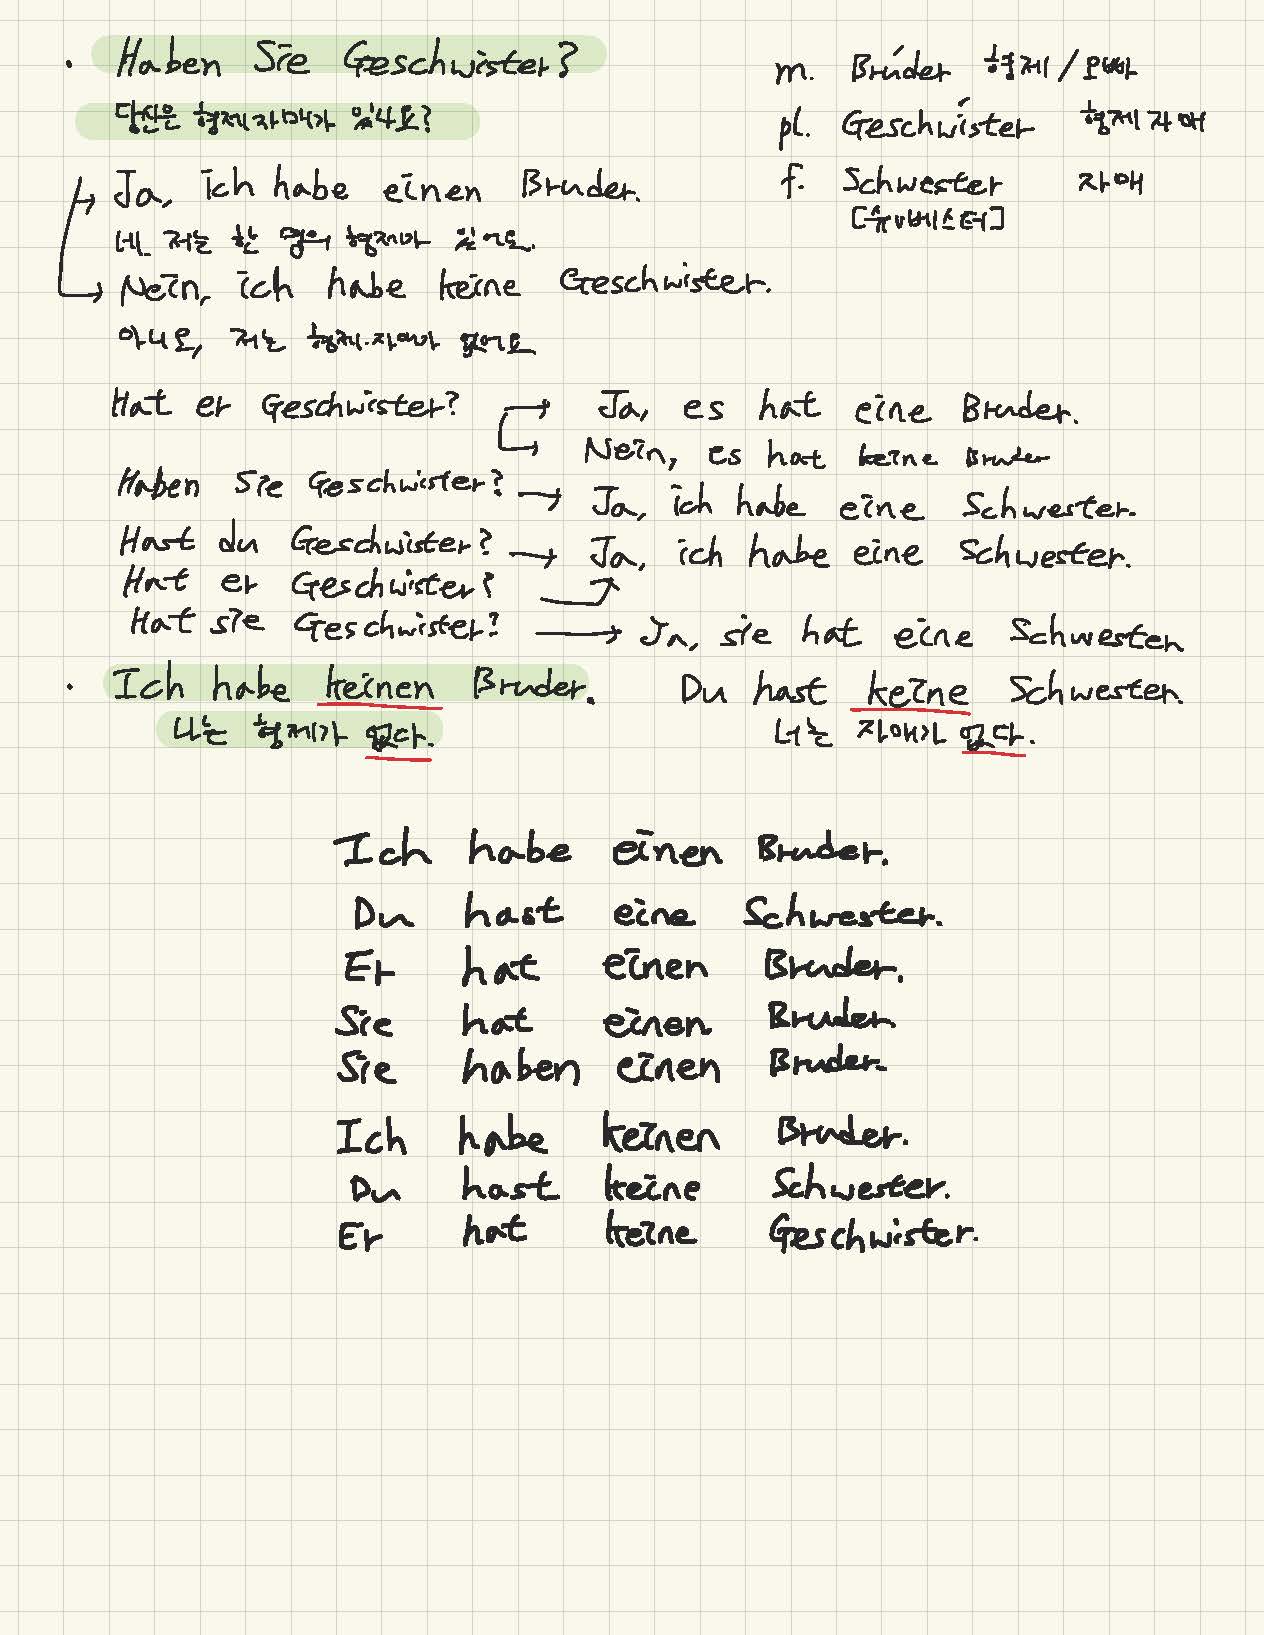 · Haben Sie Geschwister?
당신은 형제자매가 있나요?
m. Brúder 형제/오빠
pl. Geschwíster 형제자매
f. Schwester 자매
[슈v베스터]
Ja, ich habe einen Bruder.
네 저는 한 명의 형제가 있어요.
Nein, ich habe keine Geschwister.
아니오, 저는 형제·자매가 없어요
Hat er Geschwister? Ja, es hat eine Bruder.
Nein, es hat keine Bruder
Haben Sie Geschwister? → Ja, ich habe eine Schwester.
Hast du Geschwister? → Ja, ich habe eine Schwester.
Hat er Geschwister?
Hat sie Geschwister? → Ja, sie hat eine Schwester
· Ich habe keinen Bruder. Du hast keine Schwester.
나는 형제가 없다. 너는 자매가 없다.
Ich habe einen Bruder.
Du hast eine Schwester.
Er hat einen Bruder.
Sie hat einen Bruder
Sie haben einen Bruder.
Ich habe keinen Bruder.
Du hast keine Schwester.
Er hat keine Geschwister.